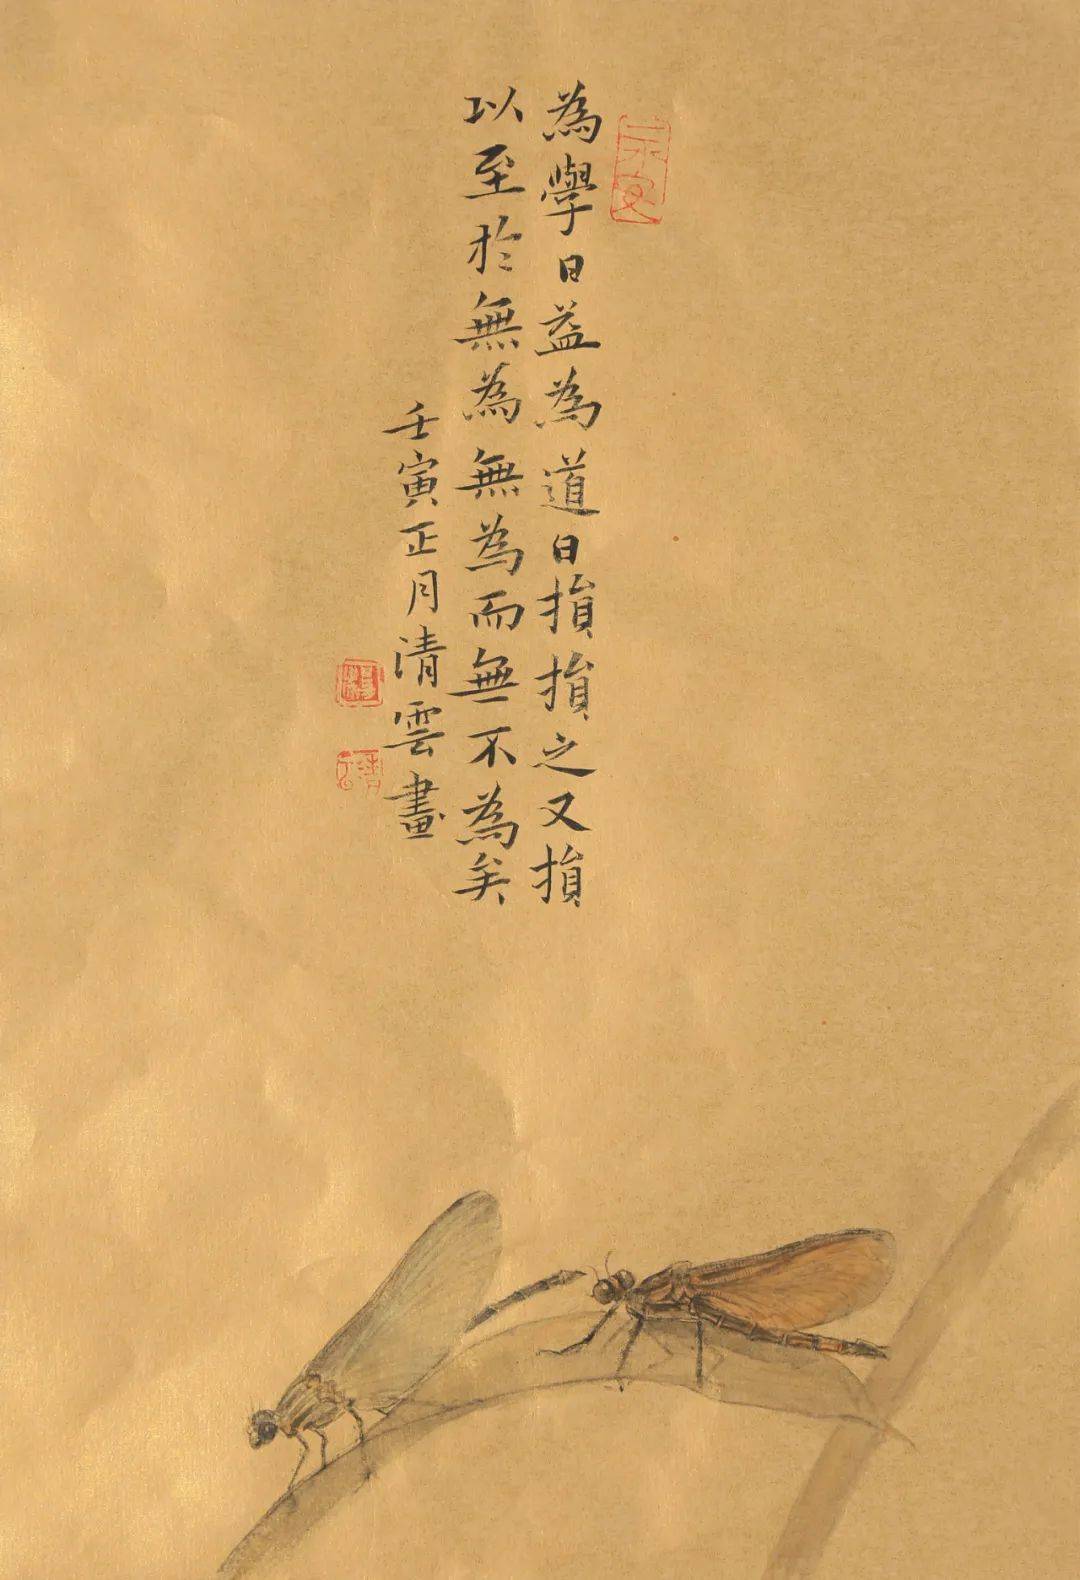 為學日益為道日損損之又損
以至於無為無為而無不為矣
壬寅正月清雲畫